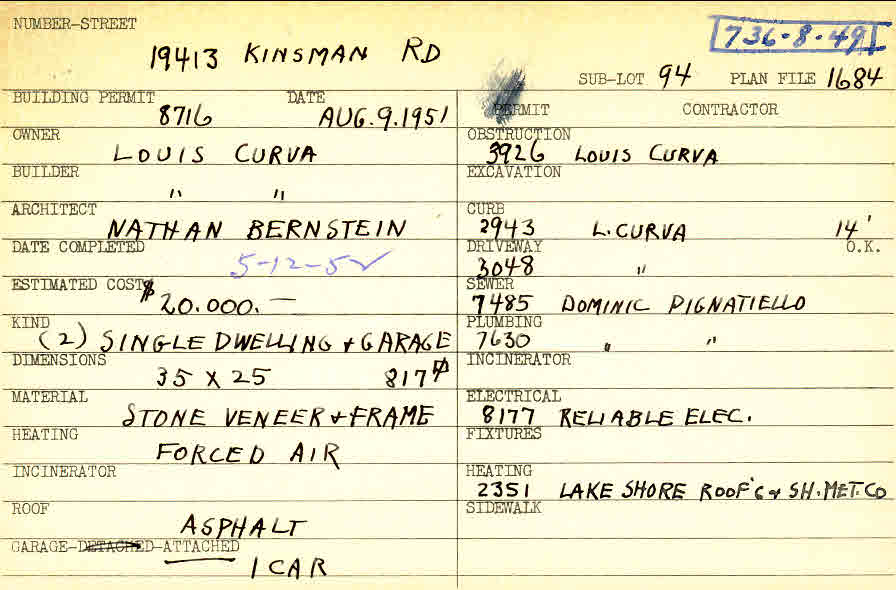 NUMBER-STREET
19413 KINSMAN RD
736-8-49
SUB-LOT 94 PLAN FILE 1684
BUILDING PERMIT DATE
8716 AUG.9.1951
PERMIT CONTRACTOR
OWNER
LOUIS CURVA
OBSTRUCTION
3926 LOUIS CURVA
BUILDER
" "
EXCAVATION
ARCHITECT
NATHAN BERNSTEIN
CURB
2943 L.CURVA 14'
DATE COMPLETED
5-12-52
DRIVEWAY O.K.
3048 "
ESTIMATED COST
$20.000.—
SEWER
7485 DOMINIC PIGNATIELLO
KIND
(2) SINGLE DWELLING & GARAGE
PLUMBING
7630 " "
DIMENSIONS
35 X 25 817
INCINERATOR
MATERIAL
STONE VENEER & FRAME
ELECTRICAL
8177 RELIABLE ELEC.
HEATING
FORCED AIR
FIXTURES
INCINERATOR
HEATING
2351 LAKE SHORE ROOF'G & SH.MET.CO
ROOF
ASPHALT
SIDEWALK
GARAGE-DETACHED-ATTACHED
1 CAR